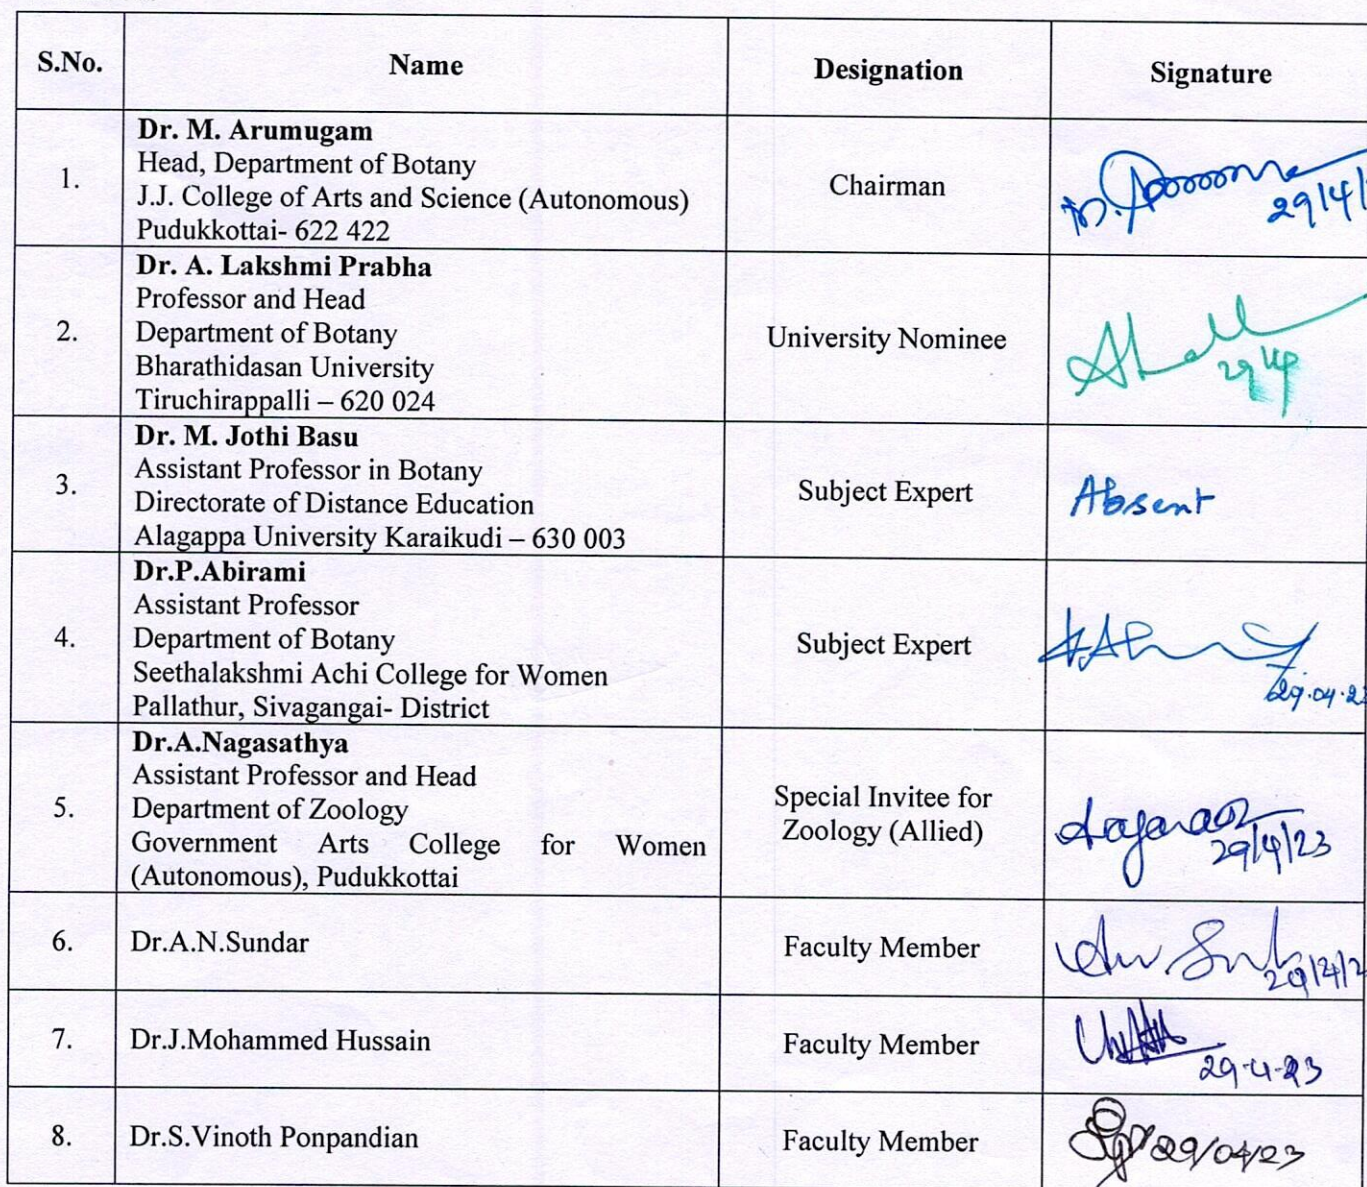 S.No. Name Designation Signature
1.
Dr. M. Arumugam
Head, Department of Botany
J.J. College of Arts and Science (Autonomous)
Pudukkottai- 622 422
Chairman
29/4/
2.
Dr. A. Lakshmi Prabha
Professor and Head
Department of Botany
Bharathidasan University
Tiruchirappalli – 620 024
University Nominee
3.
Dr. M. Jothi Basu
Assistant Professor in Botany
Directorate of Distance Education
Alagappa University Karaikudi – 630 003
Subject Expert
Absent
4.
Dr.P.Abirami
Assistant Professor
Department of Botany
Seethalakshmi Achi College for Women
Pallathur, Sivagangai- District
Subject Expert
29.04.2
5.
Dr.A.Nagasathya
Assistant Professor and Head
Department of Zoology
Government Arts College for Women
(Autonomous), Pudukkottai
Special Invitee for
Zoology (Allied)
29/4/23
6.
Dr.A.N.Sundar
Faculty Member
29/4/2
7.
Dr.J.Mohammed Hussain
Faculty Member
29-4-23
8.
Dr.S.Vinoth Ponpandian
Faculty Member
29/04/23